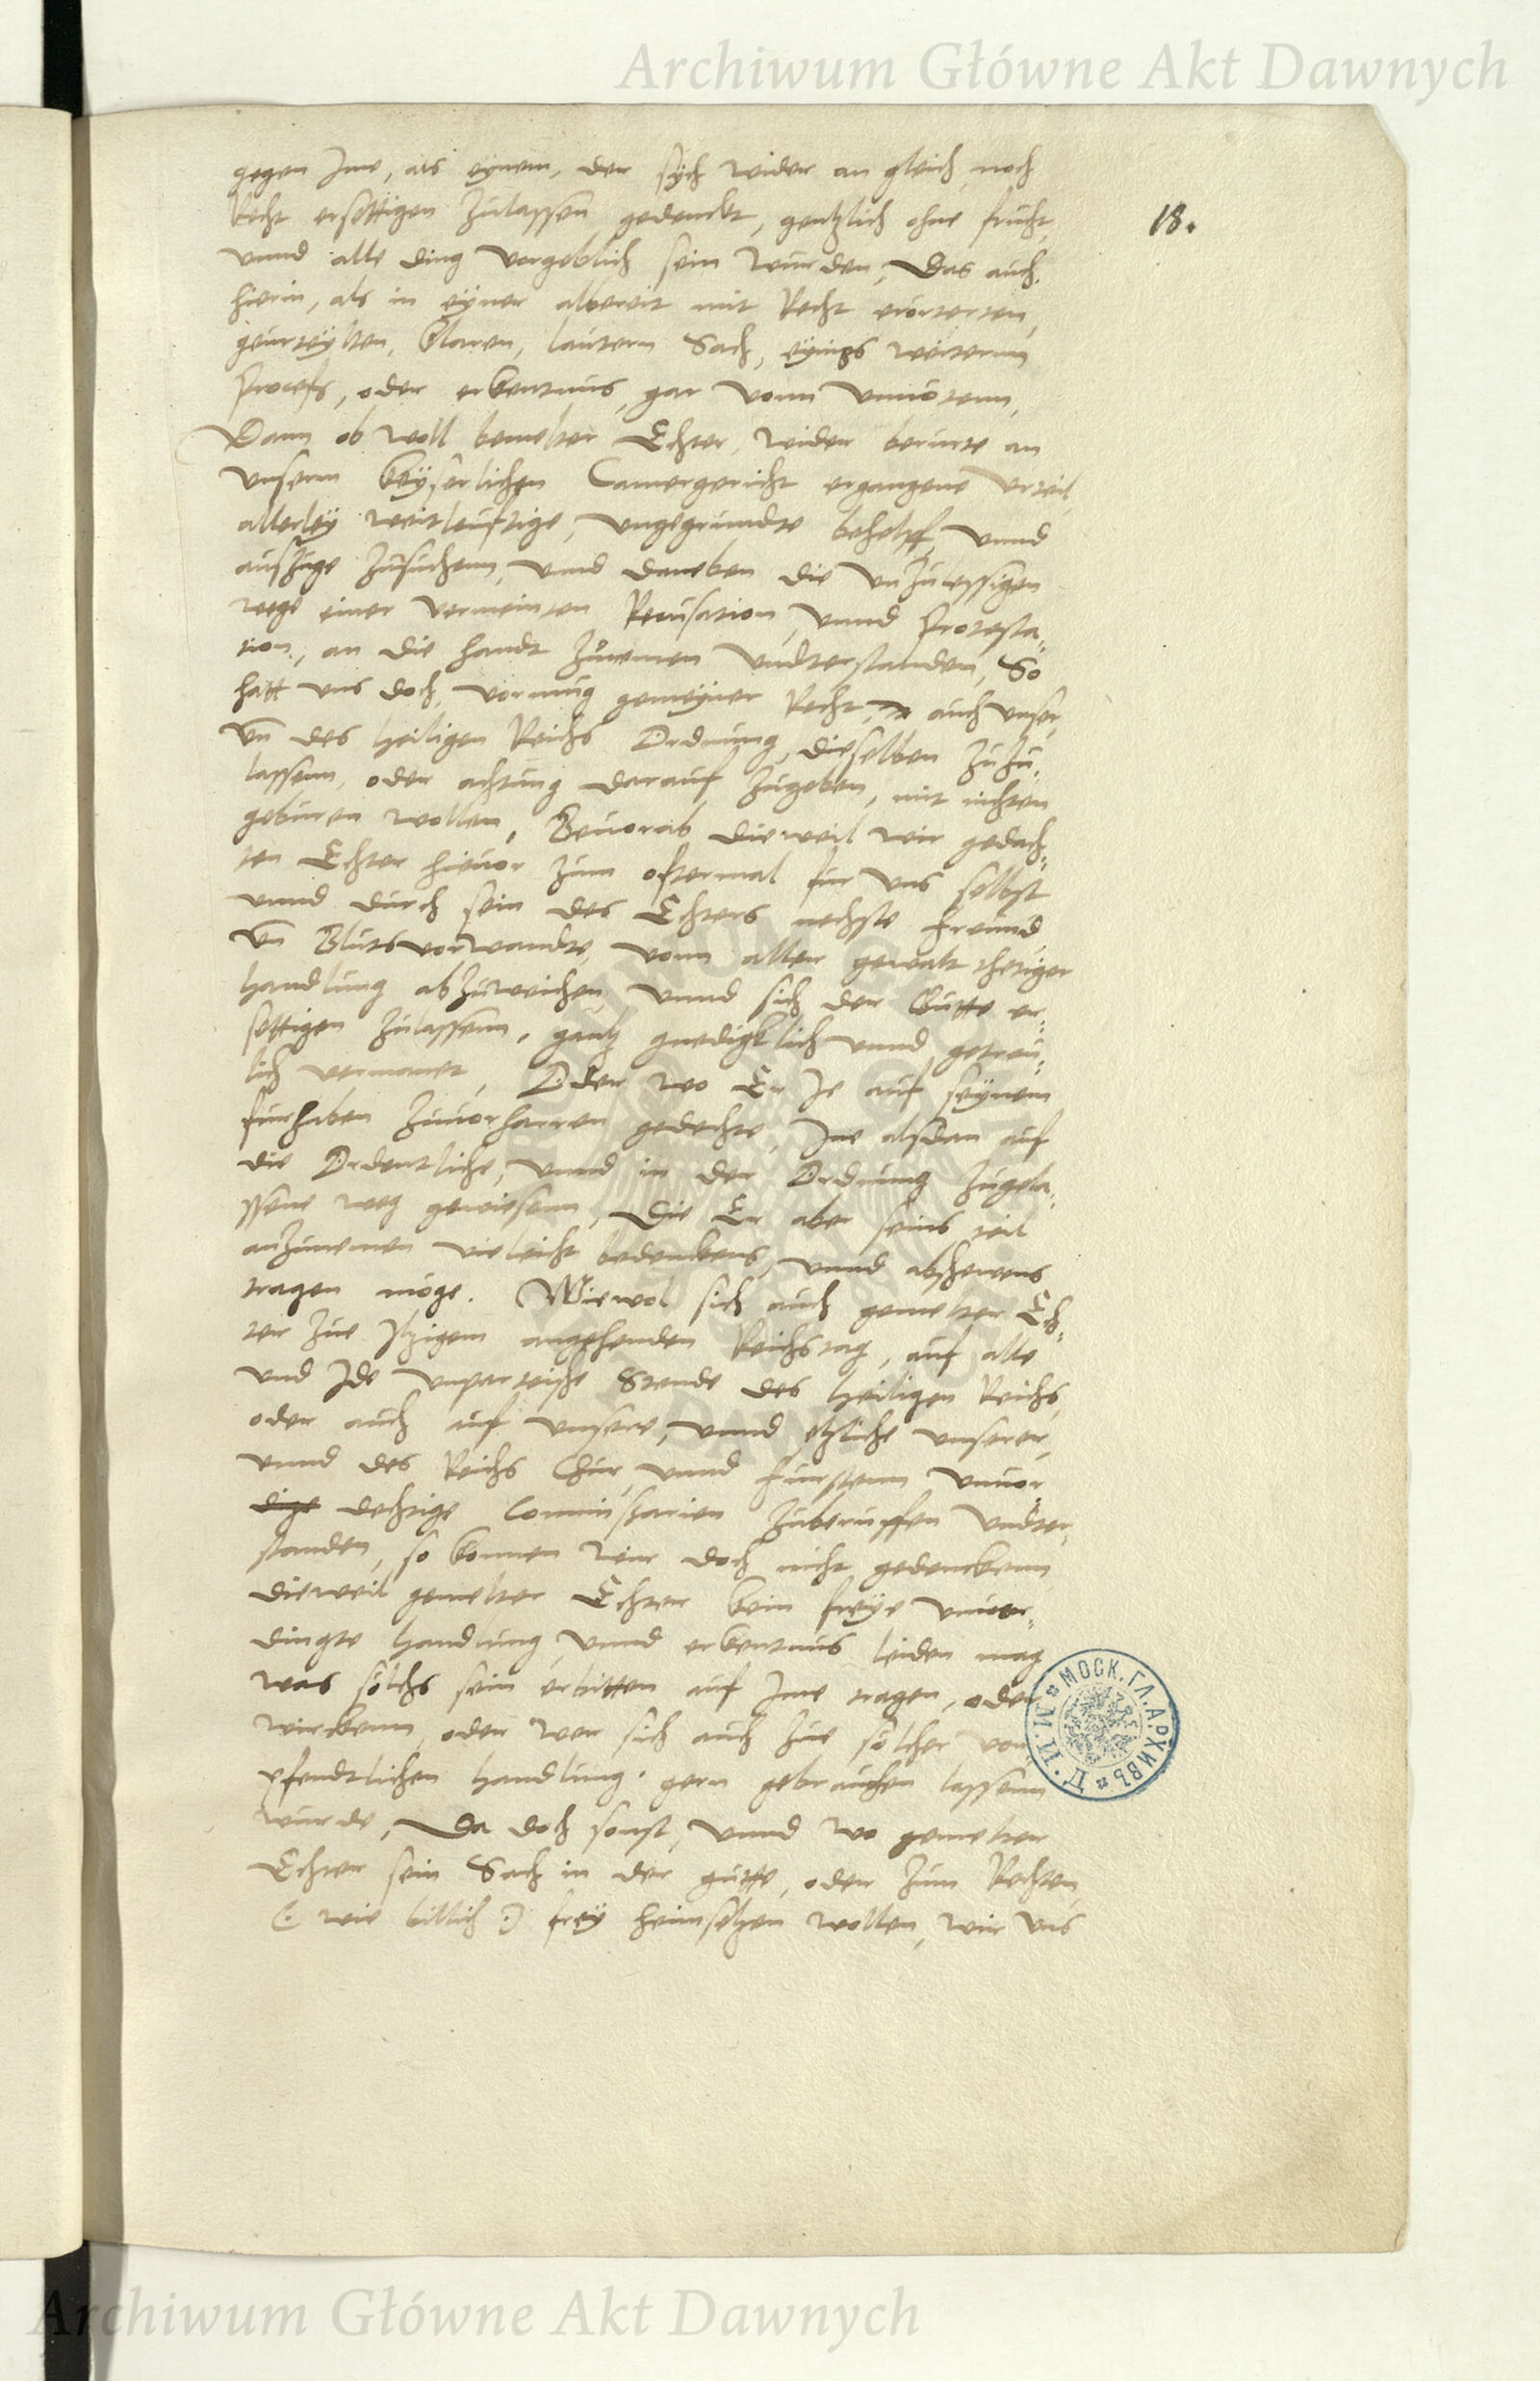 Archiwum Główne Akt Dawnych
18.
gegen Ime, als eynem, der sych wider an gleich, noch
Recht ersettigen zulassen gedenckt, gentzlich ohne frucht,
vnnd alle ding vorgeblich sein wurden, Das auch
hierin, als in eyner albereit mit Recht erorterten,
geurteylten, Claren, lautern Sach, eynigs weiterun
Process, oder erkentnus, gar vonn vnnöten,
Dann ob woll bemelter Echter, wider berurte an
vnserm keyserlichen Camergericht ergangene vrteil
allerley weitleuftige, vngegrundte behelff, vnnd
auszuge zusuchenn, vnnd daneben die vnzulessigen
wege einer vermeinten Recusation, vnnd Protesta-
tion, an die handt zunemen vndterstanden, So
hatt vns doch, vormug gemeyner Recht, auch vnser,
vn des heiligen Reichs Ordnung, dieselben zuzu-
lassenn, oder achtung darauf zugeben, mit nichten
geburen wollen, Beuorab dieweil wir gedach-
ten Echter hieuor zum oftermal fur vns selbst
vnnd durch sein des Echters nechste freund,
vn Blutsvorwandte, vonn aller gewalt thetiger
handlung abzuweichen, vnnd sich der Gutte er-
settigen zulassenn, gantz gnedigklich vnnd getreu-
lich vermanet, Oder wo Er Je auf seynem
furhaben zuuorharren gedechte, Ine alsdan auf
die Ordentliche, vnnd in der Ordnung zugela-
ssene weg gewiesenn, Die Er aber seins teil
anzunemen vieleicht bedenckens, vnnd abschewens
tragen möge. Wiewol sich auch gemelter Ech-
ter zue itzigem angehenden Reichstag, auf alle
vnd Jde vnparteische Stende des heiligen Reichs,
oder auch auf vnsere, vnnd etzliche vnserer,
vnnd des Reichs Chur, vnnd Furstenn vnuor-
dige dechtige Commissarien zuberuffen vndter-
standen, so konnen wir doch nicht gedenckenn
dieweil gemelter Echter kein freye vnuer-
dingte handlung, vnnd erkentnus leiden mag
was solchs sein erbitten auf Ime tragen, oder
wirckenn oder wer sich auch zue solcher vor-
pfendtlichen handlung gern gebrauchen lassenn
wurde, Da doch sonst, vnnd wo gemelter
Echter sein Sach in der gutte, oder zum Rechten
(: wie billich :) frey heimsetzen wollen, wir vns
МОСК. ГЛ. АРХИВЪ
Archiwum Główne Akt Dawnych